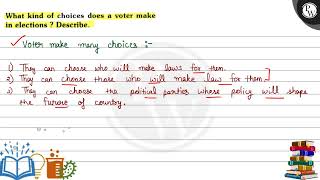 What kind of choices does a voter make
in elections ? Describe.
Voter make many choices :-
1) They can choose who will make laws for them.
2) They can choose those who will make law for them.
3) They can choose the political parties whose policy will shape
the future of country.